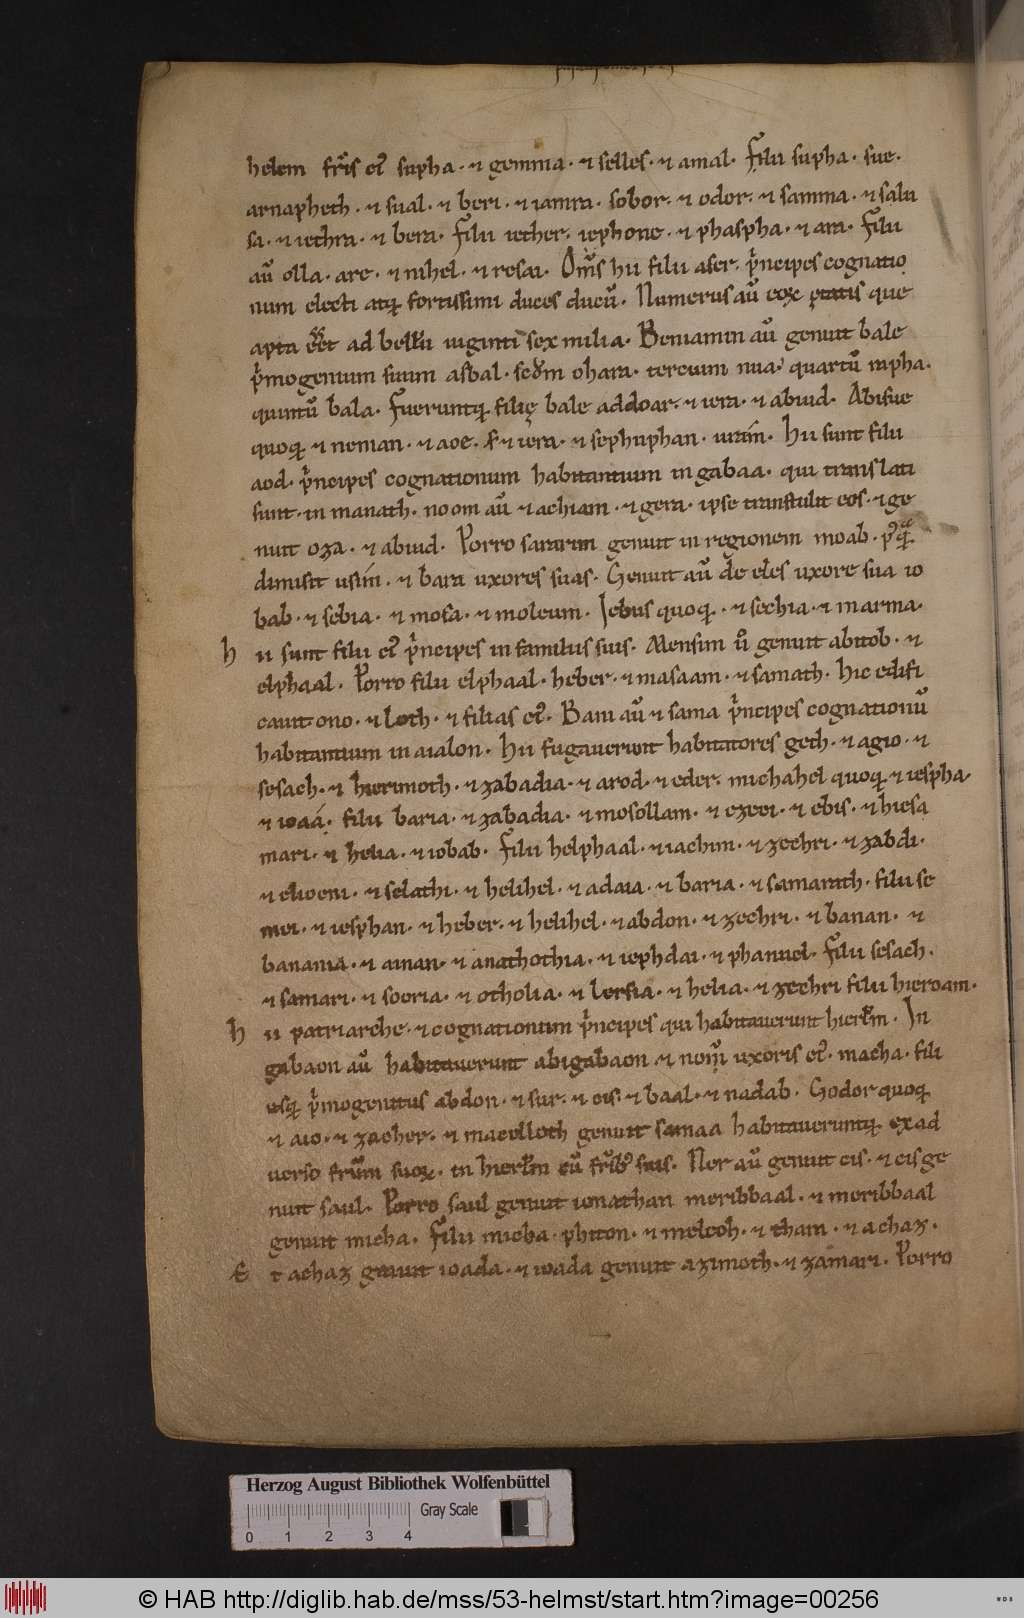 helem fr̄is ei᷒ supha · ⁊ gemma · ⁊ selles · ⁊ amal · Filii supha · sue ·
arnapheth · ⁊ sual · ⁊ beri · ⁊ iamra · sobor · ⁊ odor · ⁊ samma · ⁊ salu
sa · ⁊ iethra · ⁊ bera · Filii iether · iephone · ⁊ phaspha · ⁊ ara · Filii
aū olla · are · ⁊ nihel · ⁊ resai · Om̄s hii filii aser · p̍ncipes cognatio
num electi atq; fortissimi duces ducū · Numerus aū eoꝝ ętatis que
apta eēt ad bellū uiginti sex milia · Beniamin aū genuit bale
p̍mogenitum suum asbal · sed̄m ohara · tercium nua · quartū rapha ·
quintū bala · Fueruntq; filię bale addoar · ⁊ iera · ⁊ abiud · Abisue
quoq; ⁊ neman · ⁊ aoe · S; ⁊ iera · ⁊ sephuphan · uram · Hii sunt filii
aod · p̍ncipes cognationum habitantium in gabaa · qui translati
sunt · in manath · noom aū ⁊ achiam · ⁊ gera · ipse transtulit eos · ⁊ ge
nuit oza · ⁊ abiud · Porro sararim genuit in regionem moab · p᷒q̄
dimisit usim · ⁊ bara uxores suas · Genuit aū de eles uxore sua io
bab · ⁊ sebia · ⁊ mosa · ⁊ moleum · Iebus quoq; · ⁊ sechia · ⁊ marma ·
H ii sunt filii ei᷒ p̍ncipes in familiis suis · Mensim u͛o genuit abitob · ⁊
elphaal · Porro filii elphaal · heber · ⁊ masaam · ⁊ samath · hic edifi
cauit ono · ⁊ loth · ⁊ filias ei᷒ · Bari aū ⁊ sama p̍ncipes cognationū
habitantium in aialon · Hii fugauerunt habitatores geth · ⁊ agio · ⁊
sesach · ⁊ hierimoth · ⁊ zabadia · ⁊ arod · ⁊ eder · michahel quoq; ⁊ iespha ·
⁊ ioaá · filii baria · ⁊ zabadia · ⁊ mosollam · ⁊ ezeei · ⁊ ebis · ⁊ hiesa
mari · ⁊ helia · ⁊ iobab · Filii helphaal · ⁊ iachim · ⁊ zechri · ⁊ zabdi ·
⁊ elioeni · ⁊ selathi · ⁊ helihel · ⁊ adaia · ⁊ baria · ⁊ samarath · filii se
mei · ⁊ iesphan · ⁊ heber · ⁊ helihel · ⁊ abdon · ⁊ zechri · ⁊ banan · ⁊
banania · ⁊ ainan · ⁊ anathothia · ⁊ iephdai · ⁊ phanuel · Filii sesach ·
⁊ samari · ⁊ soeria · ⁊ otholia · ⁊ lersia · ⁊ helia · ⁊ zechri filii hieroam ·
H ii patriarche · ⁊ cognationum p̍ncipes qui habitauerunt hierl̄m · In
gabaon aū habitauerunt abigabaon ⁊ nom̄ uxoris ei᷒ · macha · fili
usq; p̍mogenitus abdon · ⁊ sur · ⁊ cis · ⁊ baal · ⁊ nadab · Godor quoq;
⁊ aio · ⁊ zacher · ⁊ macelloth genuit samaa habitaueruntq; ex ad
uerso fr̄um suoꝝ · in hierl̄m cū fr̄ib; suis · Ner aū genuit cis · ⁊ cis ge
nuit saul · Porro saul genuit ionathan meribbaal · ⁊ meribbaal
genuit micha · Filii micha · phiton · ⁊ melech · ⁊ tham · ⁊ achaz ·
E t achaz genuit ioada · ⁊ ioada genuit azimoth · ⁊ zamari · Porro
Herzog August Bibliothek Wolfenbüttel
Gray Scale
0 1 2 3 4
© HAB http://diglib.hab.de/mss/53-helmst/start.htm?image=00256